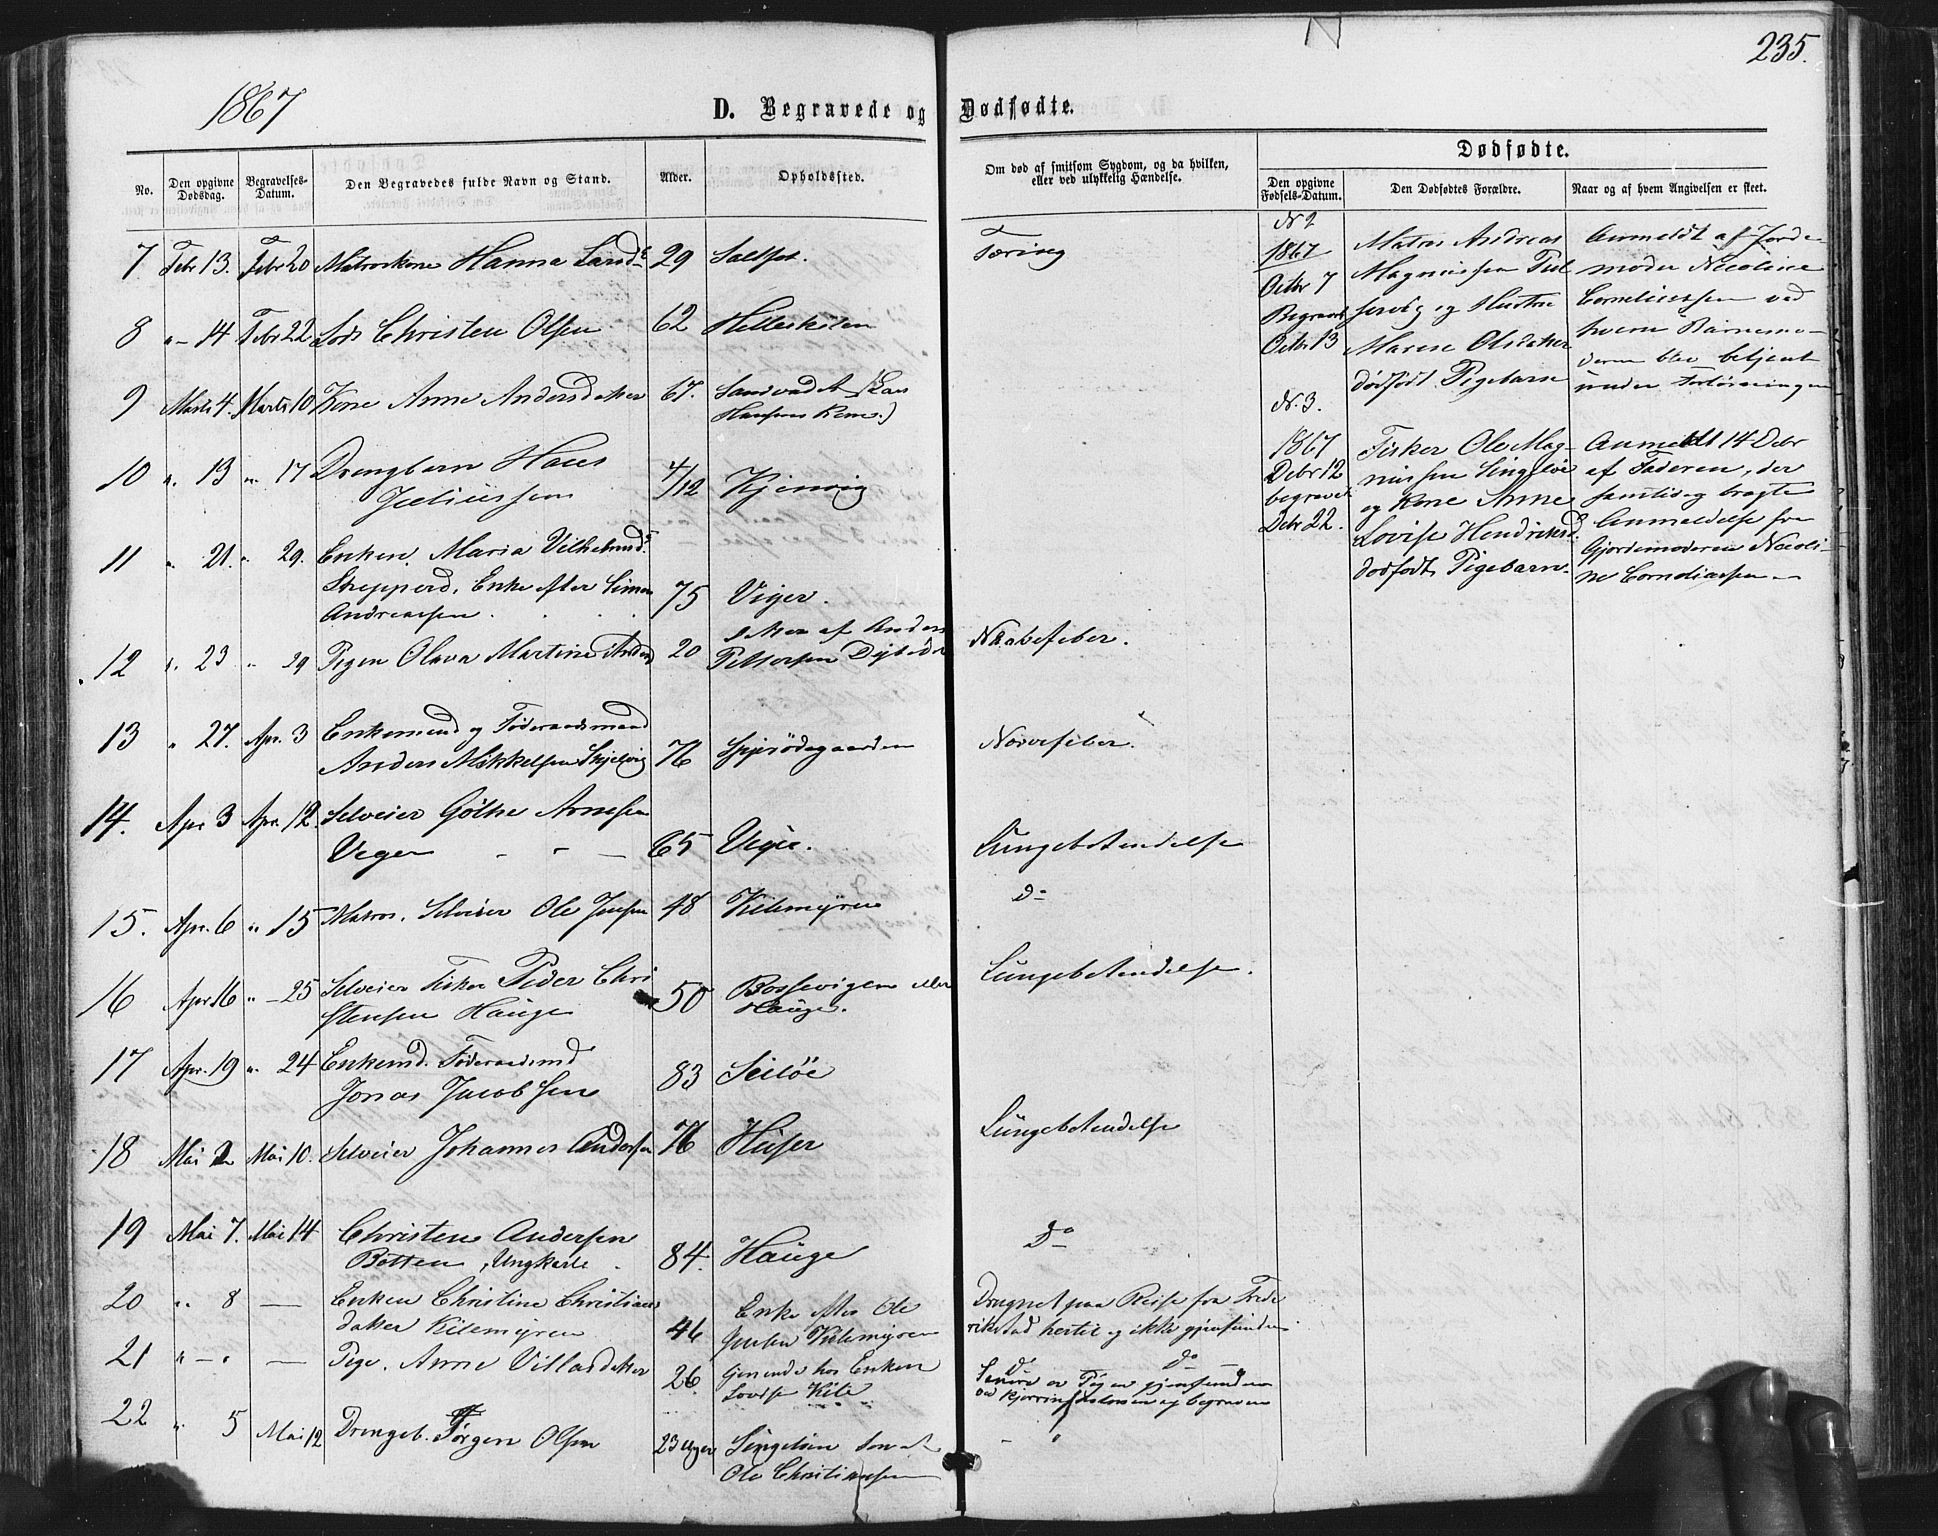 235.
1867
D. Begravede og Dødfødte.
No.
Den opgivne Dødsdag.
Begravelses-Datum.
Den Begravedes fulde Navn og Stand.
Alder.
Opholdssted.
Om død af smitsom Sygdom, og da hvilken,
eller ved ulykkelig Hændelse.
Dødfødte.
Den opgivne Fødsels-Datum.
Den Dødfødtes Forældre.
Naar og af hvem Angivelsen er skeet.
7 Febr 13. Febr 20 Matroskone Hanna Larsd 29 Tæring
8 " 14 Febr 22 Lods Christen Olsen 62 Helleskilen
9 Marts 4. Marts 10 Kone Anne Andersdatter 67. Sandvadet (Lars
Hansens Kone.)
10 " 13 " 17 Drengbarn Hans
Juliussen 4/12 Kjenvig
11 " 21. " 29. Enken. Maria Vilhelmsd
Skepperd. Enke efter Simon
Andreassen. 75 Viger.
12 " 23 " 29 Pigen Olava Martine Andersd 20 datter af Anders
Pettersen Dybedal
13 " 27. Apr. 3 Enkemand og Føderaadsmand
Anders Mikkelsen Skjelvig 76 Spjerødegaarden Nervefeber.
14. Apr 3 Apr. 12. Selveier Göthe Arnesen
Viger 65 Viger. Lungebetændelse
15. Apr. 6 " 15 Matros. Selveier Ole Jensen 48 Kilemyren Do
16 Apr 16 " 25 Selveier Fisker Peder Chri
stensen Hauge 50 Bossevigen eller
Hauge. Lungebetændelse.
17 Apr. 19 " 24 Enkemd. Føderaadsmd
Jonas Jacobsen 83 Seiløe
18 Mai 2 Mai 10. Selveier Johannes Andersen 76 Huser Lungebetændelse
19 Mai 7. Mai 14 Christen Andersen
Botten, Ungkarl. 84. Hauge Do
20 " 8 — Enken Christine Christians
datter Kilemyren 46 Enke efter Ole
Jensen Kilemyren Druknet paa Reise fra Frede
rikstad hertil og ikke gjenfunden
21 " — Pige. Anne Villasdatter 26. tjenende hos Enken
Lovise Kile Do Do
Senere er Pigen gjenfunden
22 " 5 Mai 12 Drengeb. Jørgen Olsen 23 Uger Singeløen Søn af
Ole Christiansen
N 2
1867
Octbr 7
Begravet
Octbr 13
Matros Andreas
Magnussen
og Hustru
Maren Olsdatter
dødfødt Pigebarn
Anmeldt af Jorde
moder Nicoline
Corneliussen ved
hvem Barnemo-
deren blev betjent
under Forløsningen
N. 3.
1867
Debr 12
begravet
Debr 22.
Fisker Ole Mag
nussen Singeløe
og Kone Anne
Lovise Hendriksd
dødfødt Pigebarn.
Anmeldt 14 Debr
af Faderen, der
samtidig bragte
Anmeldelse fra
Gjordemoderen Nicoli-
ne Corneliussen